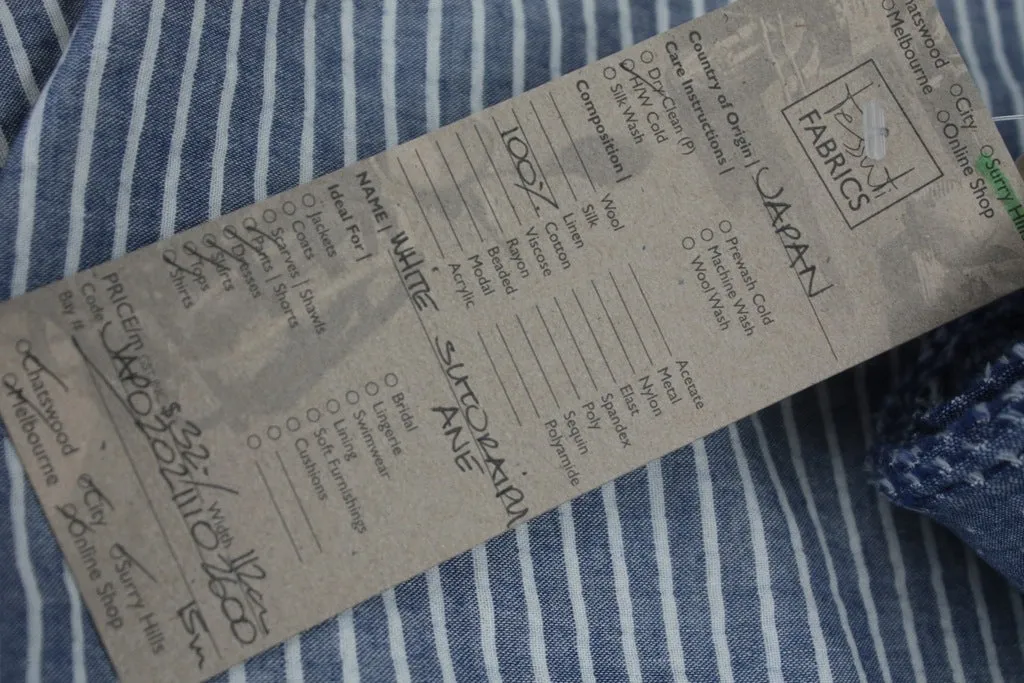 Chatswood
Melbourne
City
Online Shop
Surry Hill
tessuti
FABRICS
Country of Origin | JAPAN
Care Instructions |
Dry Clean (P)
H/W Cold
Silk Wash
Prewash Cold
Machine Wash
Wool Wash
Composition |
Wool
Silk
Linen
100% Cotton
Viscose
Rayon
Beaded
Modal
Acrylic
Acetate
Metal
Nylon
Elast
Spandex
Poly
Sequin
Polyamide
NAME | WHITE SUTORAIPU
ANE
Ideal For |
Jackets
Coats
Scarves | Shawls
Pants | Shorts
Dresses
Skirts
Tops
Shirts
Bridal
Lingerie
Swimwear
Lining
Soft Furnishings
Cushions
PRICE/m $32/ Width
Code JAP0202111072600
Buy # 15m
Chatswood
Melbourne
City
Online Shop
Surry Hills